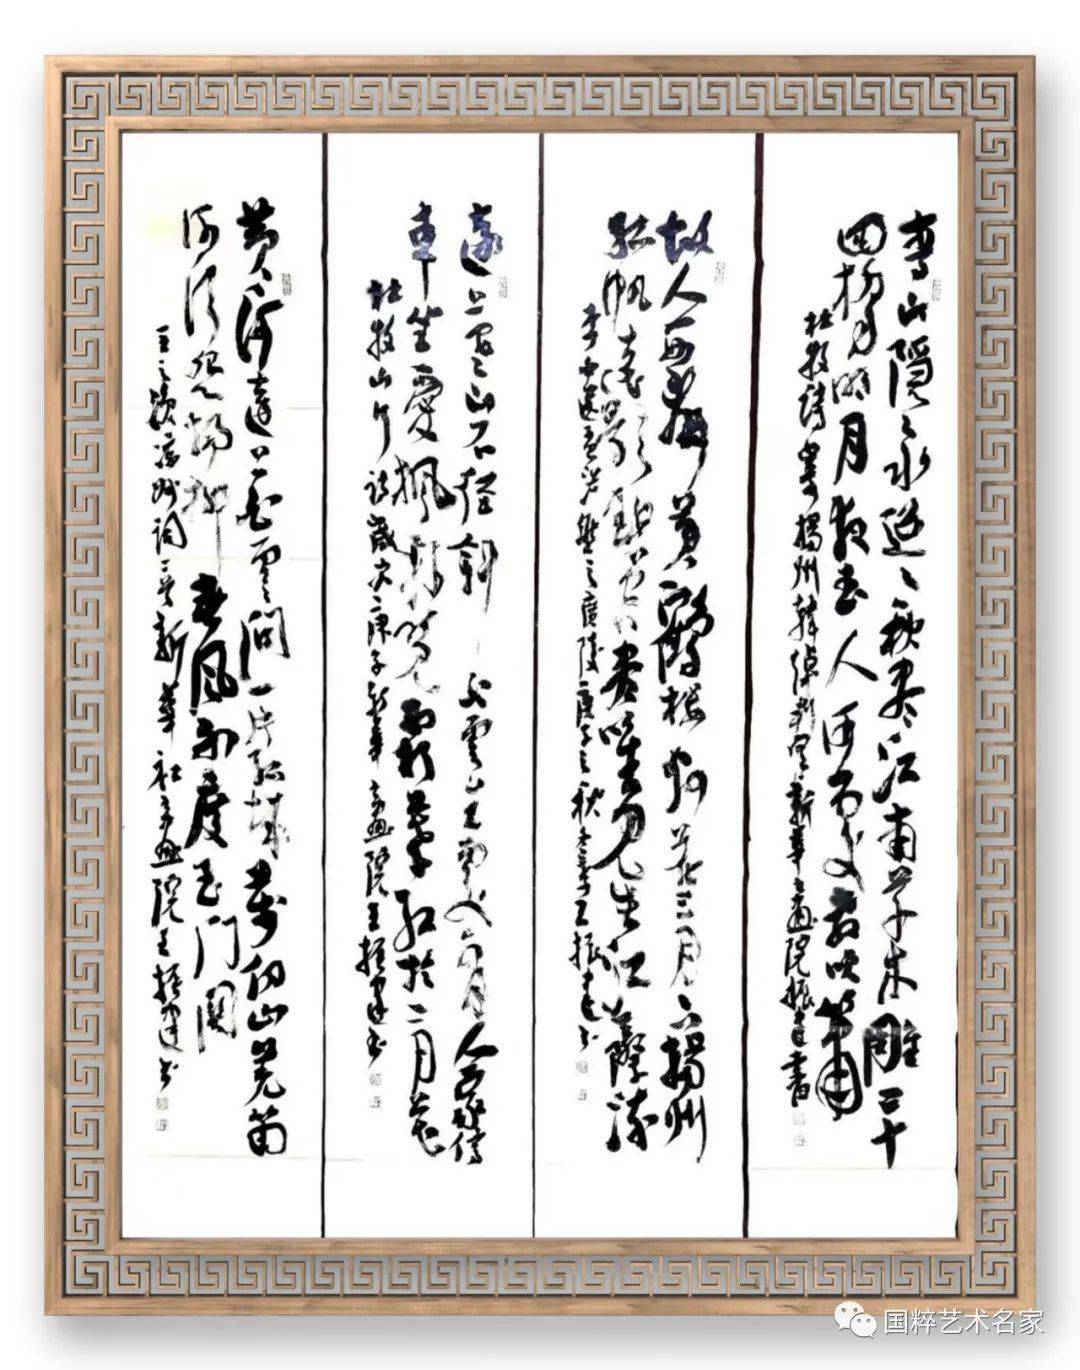 青山隐隐水迢迢秋尽江南草木雕二十
四桥明月夜玉人何处教吹箫
杜牧诗寄揚州韓绰判官新華书画院振建書
故人西辞黄鶴楼烟花三月下揚州
孤帆远影碧空尽唯见长江天際流
李白送孟浩然之廣陵庚子之秋王振建书
远上寒山石径斜白雲生处有人家停
車坐愛枫林晚霜葉红於二月花
杜牧山行诗歲次庚子新華书画院王振建书
黄河遠上白雲间一片孤城萬仞山羌笛
何须怨楊柳春风不度玉门関
王之涣凉州词一首新華社书画院王振建书
国粹艺术名家